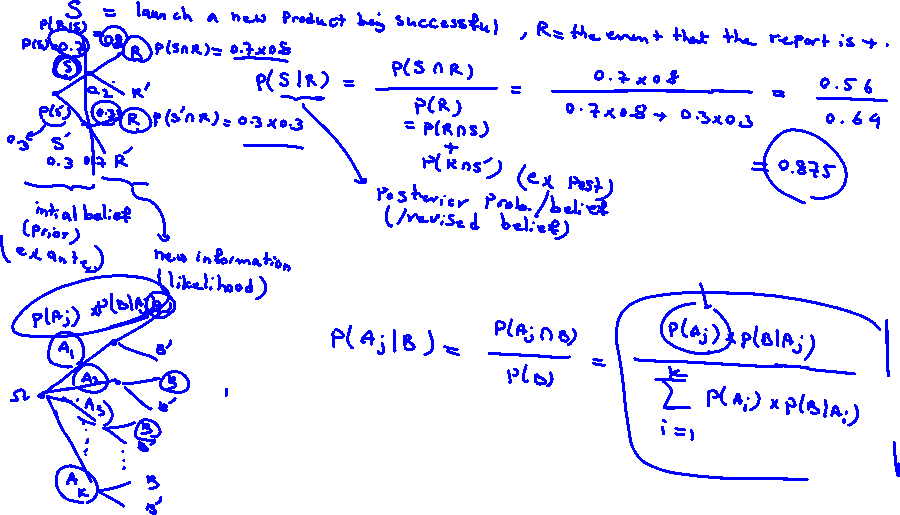 S = launch a new product being successful, R = the event that the report is +.
P(R|S)
P(S)=0.7 0.8 R P(S∩R) = 0.7×0.8
S
0.2 R'
P(S') 0.3 R P(S'∩R) = 0.3×0.3
0.3 S'
0.3 0.7 R'
P(S|R) = P(S∩R) / P(R) = (0.7×0.8) / (0.7×0.8 + 0.3×0.3) = 0.56 / 0.64
= P(R∩S)
+
P(R∩S')
= 0.875
(ex post)
Posterior Prob./belief
(/revised belief)
intial belief
(prior)
(ex ante)
new information
(likelihood)
P(Aj) × P(B|Aj) B
A1 B'
Ω A2 B
B'
A3 B
B'
AK B
B'
P(Aj|B) = P(Aj∩B) / P(B) = P(Aj) × P(B|Aj) / ∑ K i=1 P(Ai) × P(B|Ai)